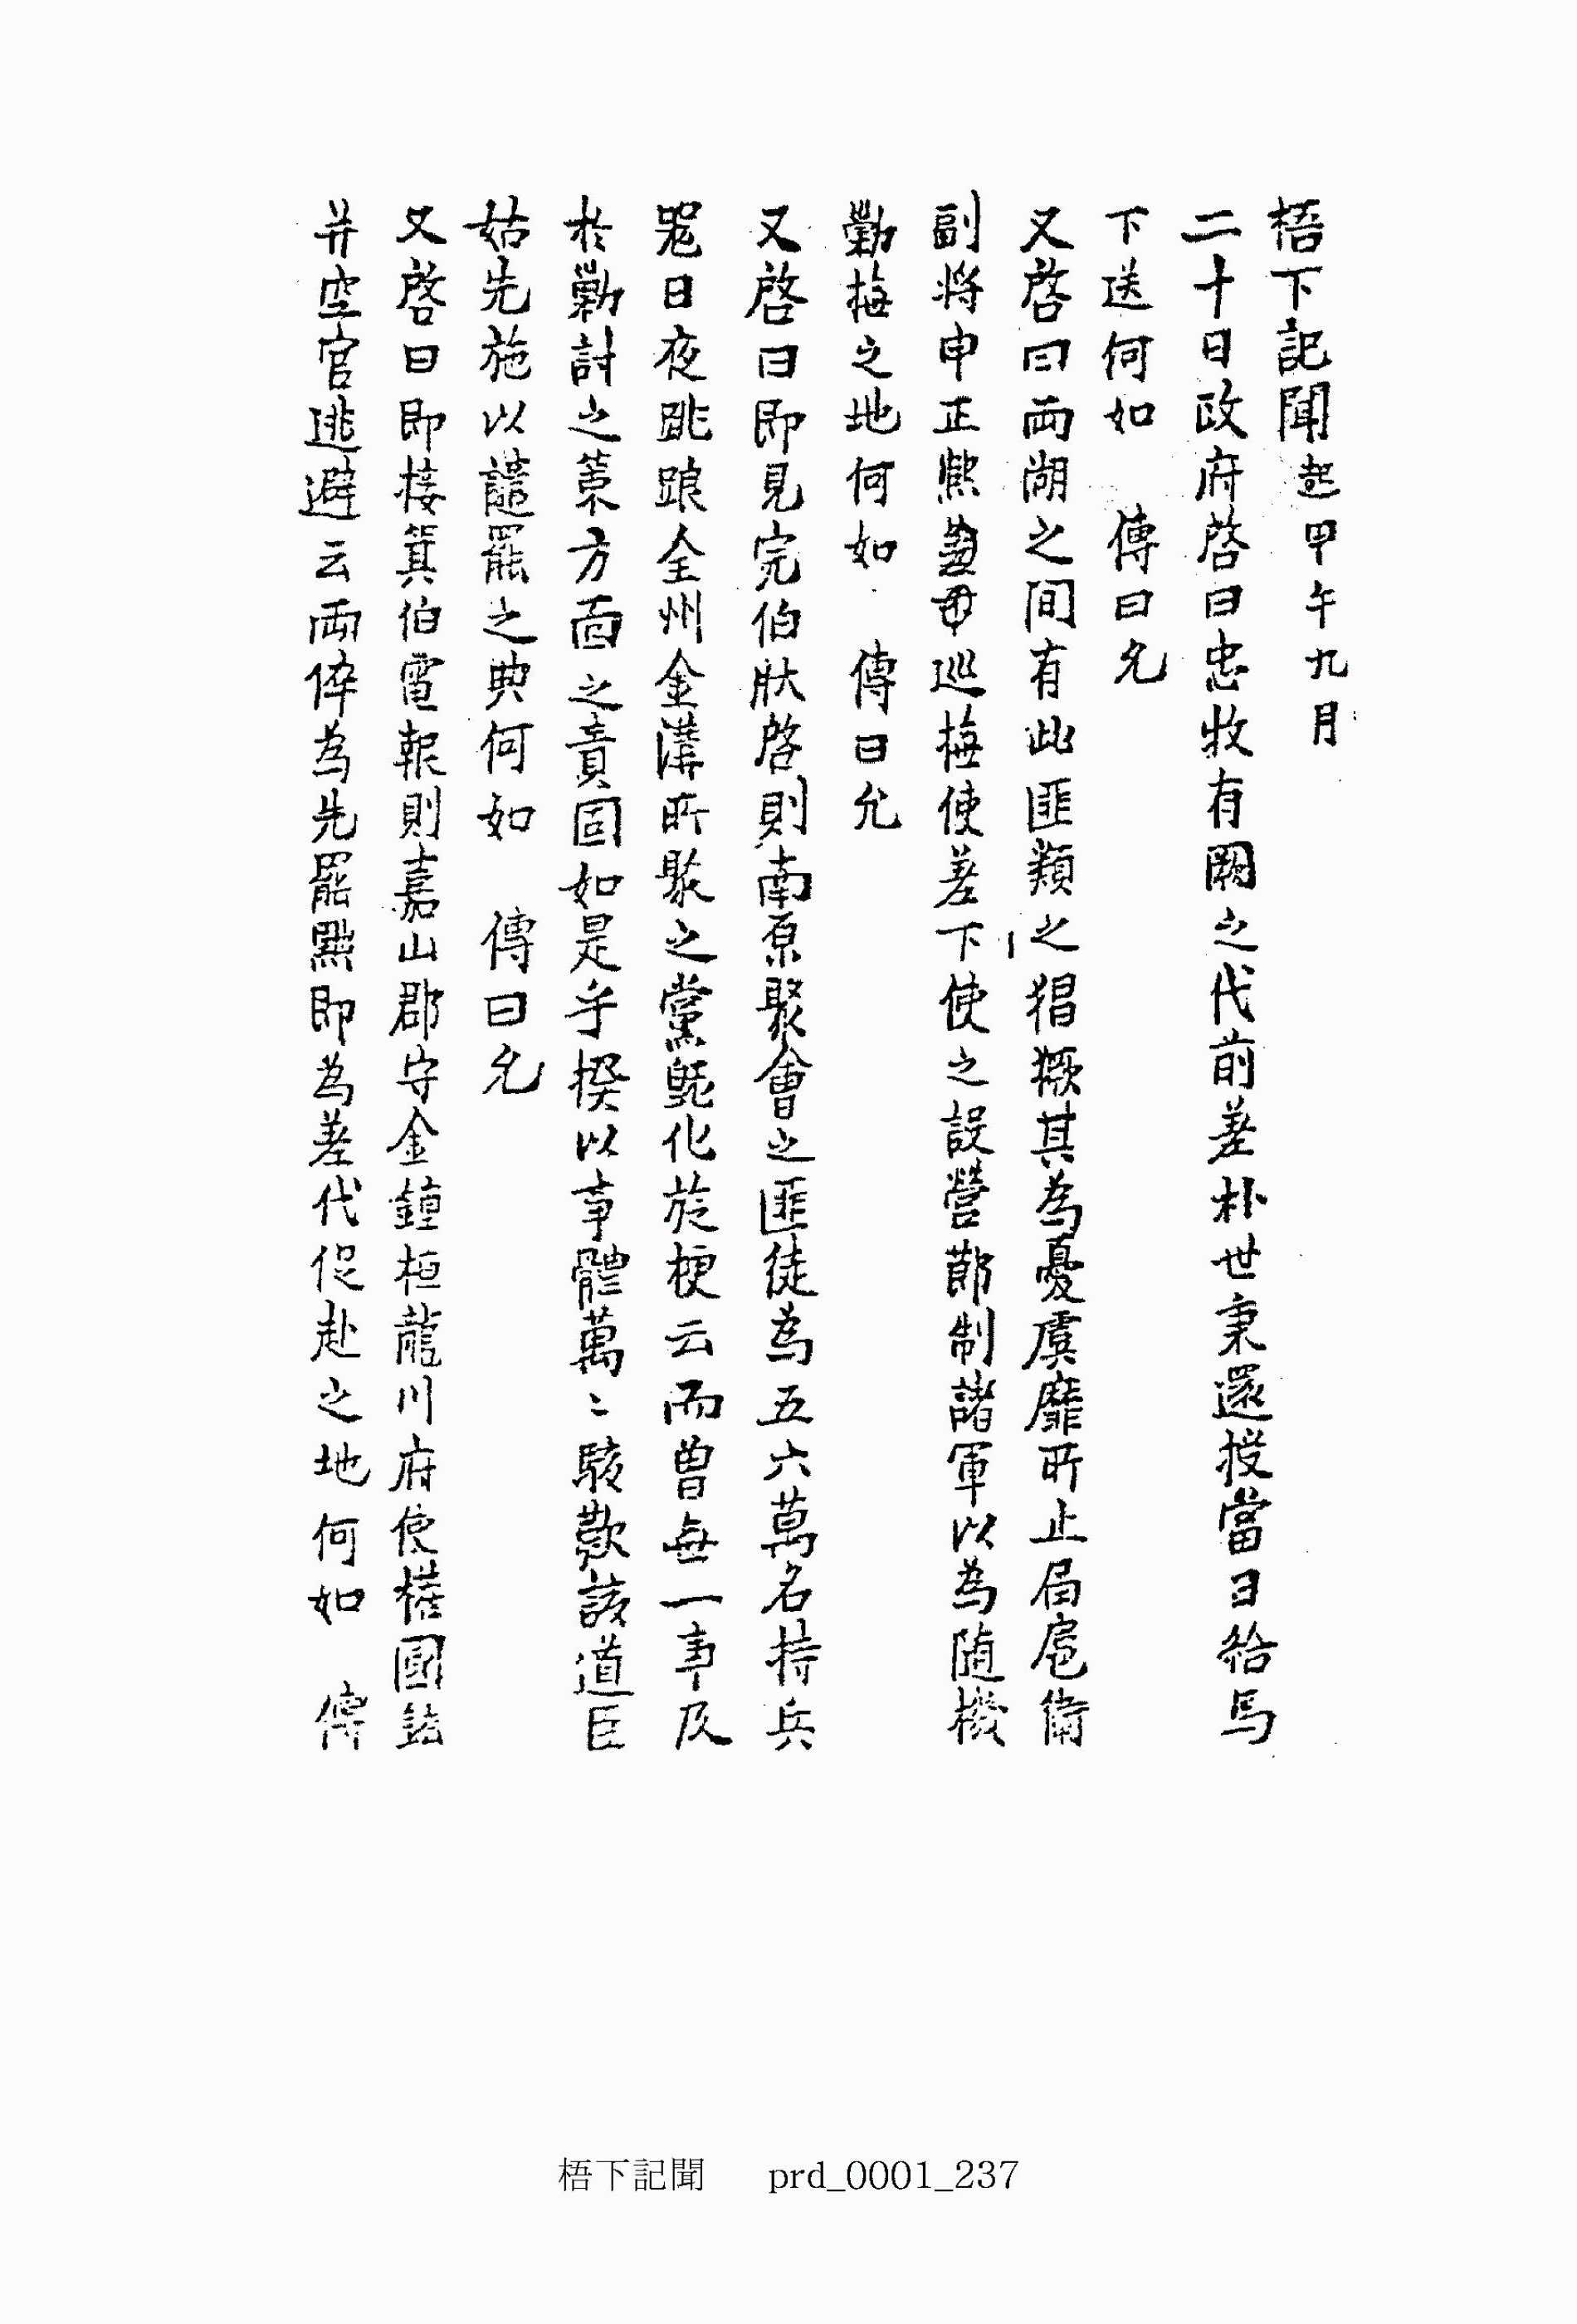 梧下記聞 起甲午九月
二十日政府啓曰忠牧有闕之代前差朴世秉還授當日給馬
下送何如 傳曰允
又啓曰兩湖之間有此匪類之猖獗其爲憂虞靡所止屆扈衛
副將申正熙 巡撫使差下使之設營節制諸軍以爲随機
勦撫之地何如 傳曰允
又啓曰卽見完伯狀啓則南原聚會之匪徒爲五六萬名持兵
器日夜跳踉全州金溝所聚之黨旣化旋梗云而曾無一事及
於勦討之策方面之責固如是乎揆以事體萬〻駭歎該道臣
姑先施以譴罷之典何如 傳曰允
又啓曰卽接箕伯電報則嘉山郡守金鍾桓龍川府使權國鉉
并空官逃避云兩倅爲先罷黜卽爲差代促赴之地何如 傳
梧下記聞 prd_0001_237